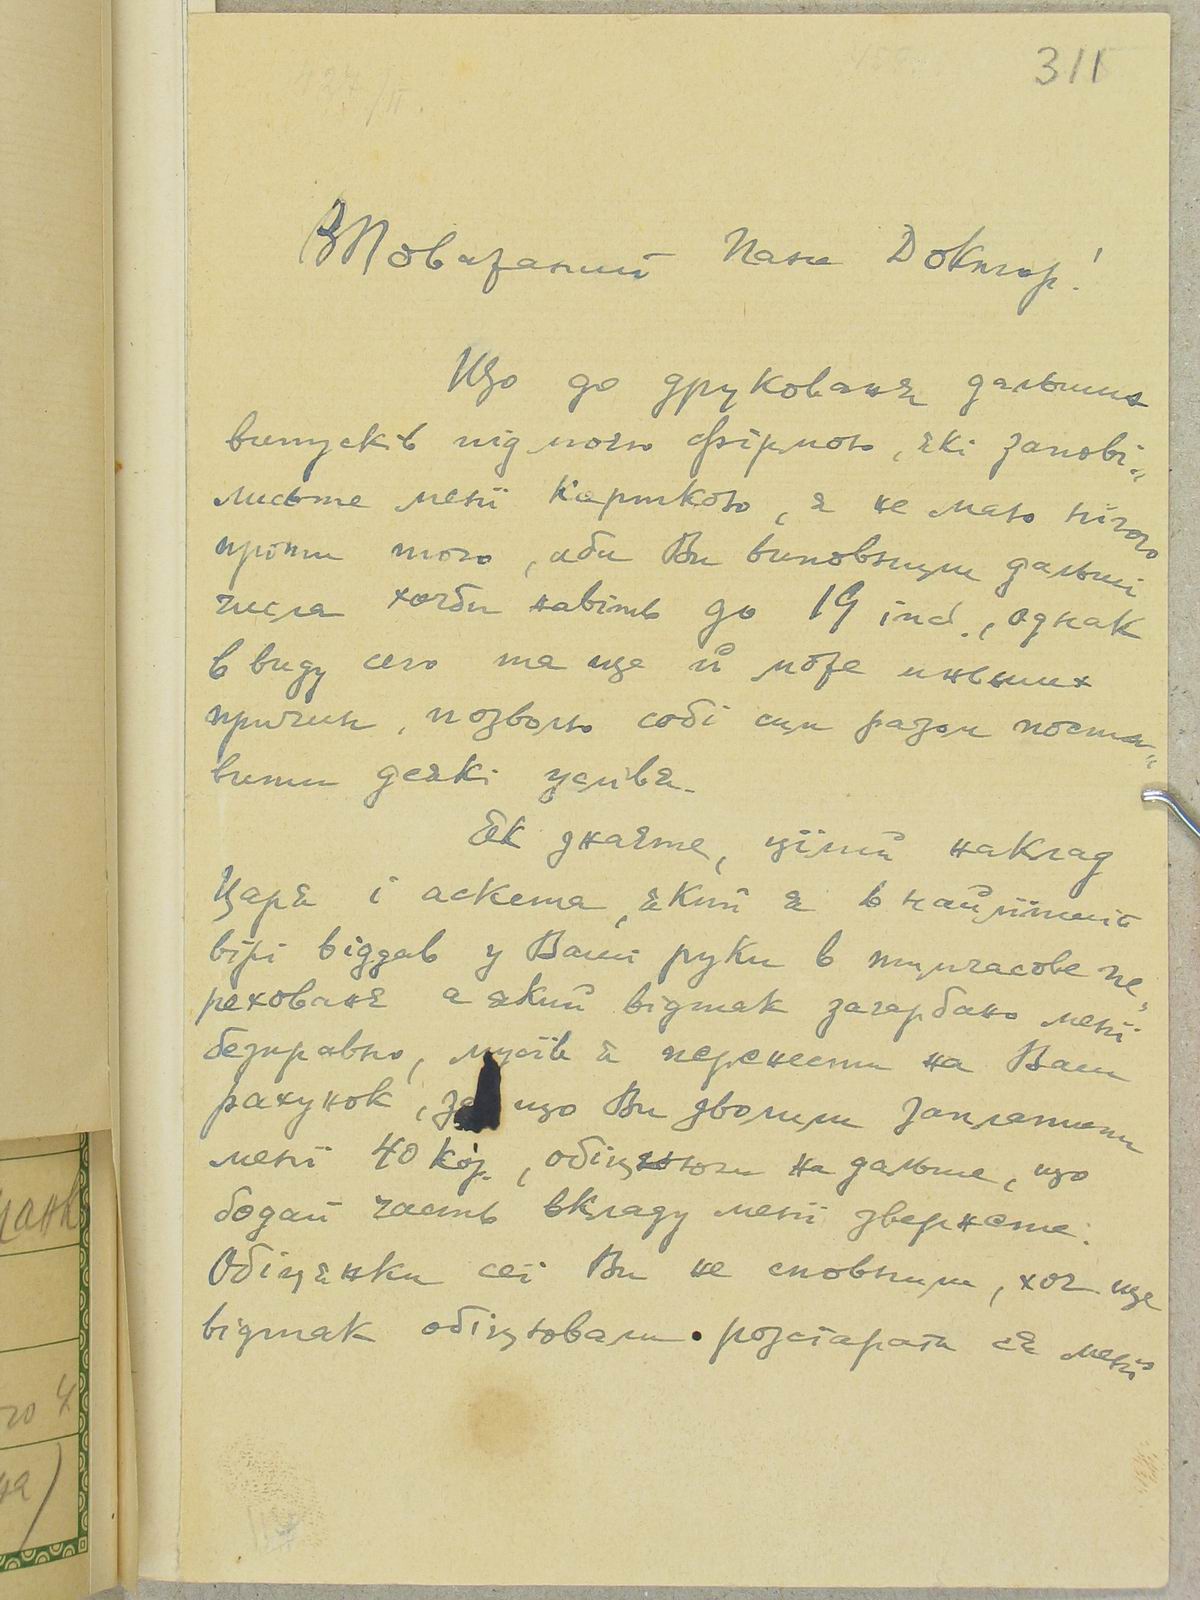 311
ВПоважаний Пане Доктор!
Що до друкованя дальших
випусків під моєю фірмою, які запові-
лисьте мені карткою, я не маю нічого
проти того, аби Ви виповнили дальші
числа хочби навіть до 19 incl., однак
в виду сего та ще й може иньших
причин, позволю собі сим разом поста-
вити деякі услівя.
Як знаєте, цілий наклад
Царя і аскета, який я в найліпшій
вірі віддав у Ваші руки в тимчасове пе-
рехованя а який відтак загарбано мені
безправно, мусів я перенести на Ваш
рахунок, за що Ви зволили заплатити
мені 40 кор., обіцюючи на дальше, що
бодай часть вкладу мені звернете.
Обіцянки сеї Ви не сповнили, хоч ще
відтак обіцювали розстарати ся мені
ого
на)